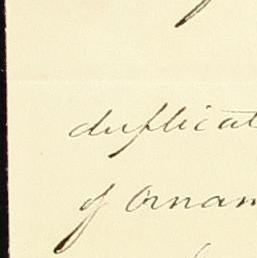 duplicat
of Ornam